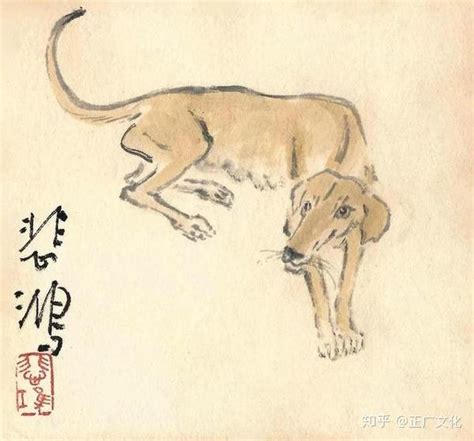 悲鸿
知乎 @正广文化